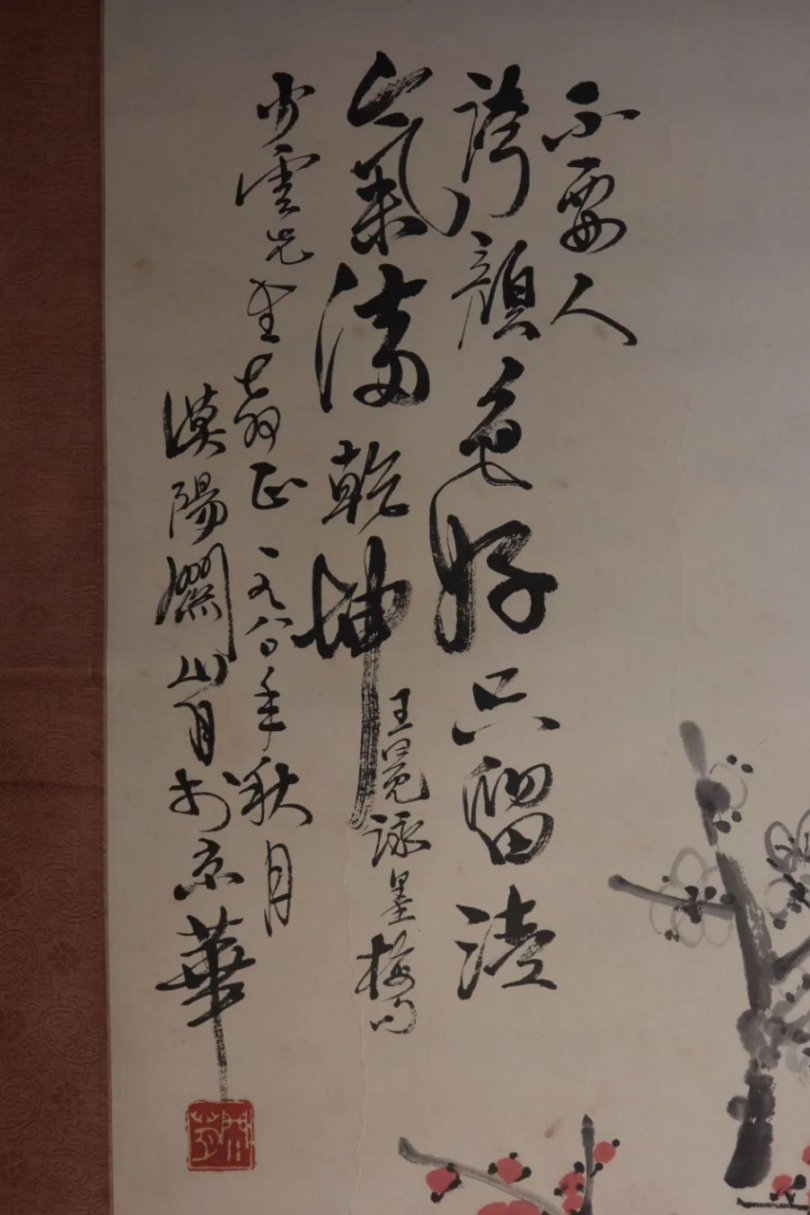 不要人
誇顏色好只留清
氣滿乾坤
王冕詠墨梅句
少雲先生教正 一九八〇年秋月
漠陽關山月於京華